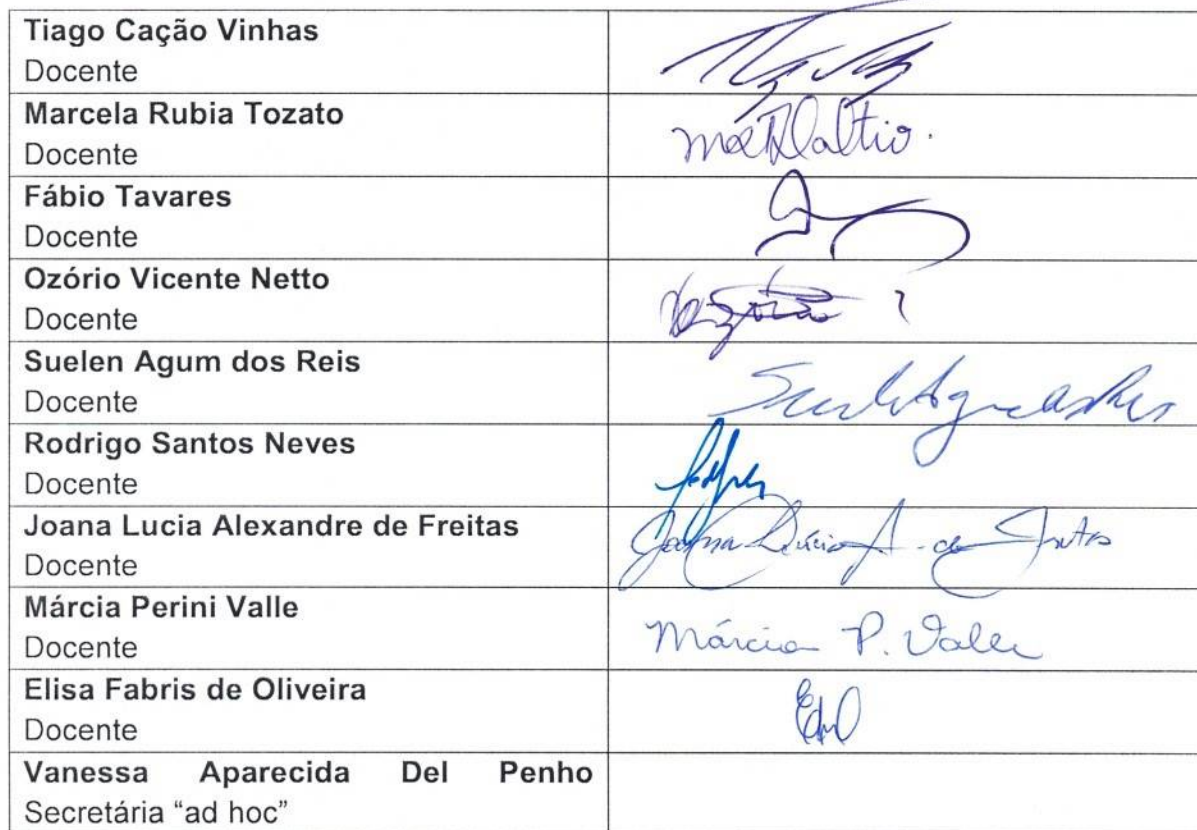 Tiago Cação Vinhas
Docente
Marcela Rubia Tozato
Docente
Fábio Tavares
Docente
Ozório Vicente Netto
Docente
Suelen Agum dos Reis
Docente
Rodrigo Santos Neves
Docente
Joana Lucia Alexandre de Freitas
Docente
Joana Lúcia A. de Freitas
Márcia Perini Valle
Docente
Márcia P. Valle
Elisa Fabris de Oliveira
Docente
Vanessa Aparecida Del Penho
Secretária “ad hoc”